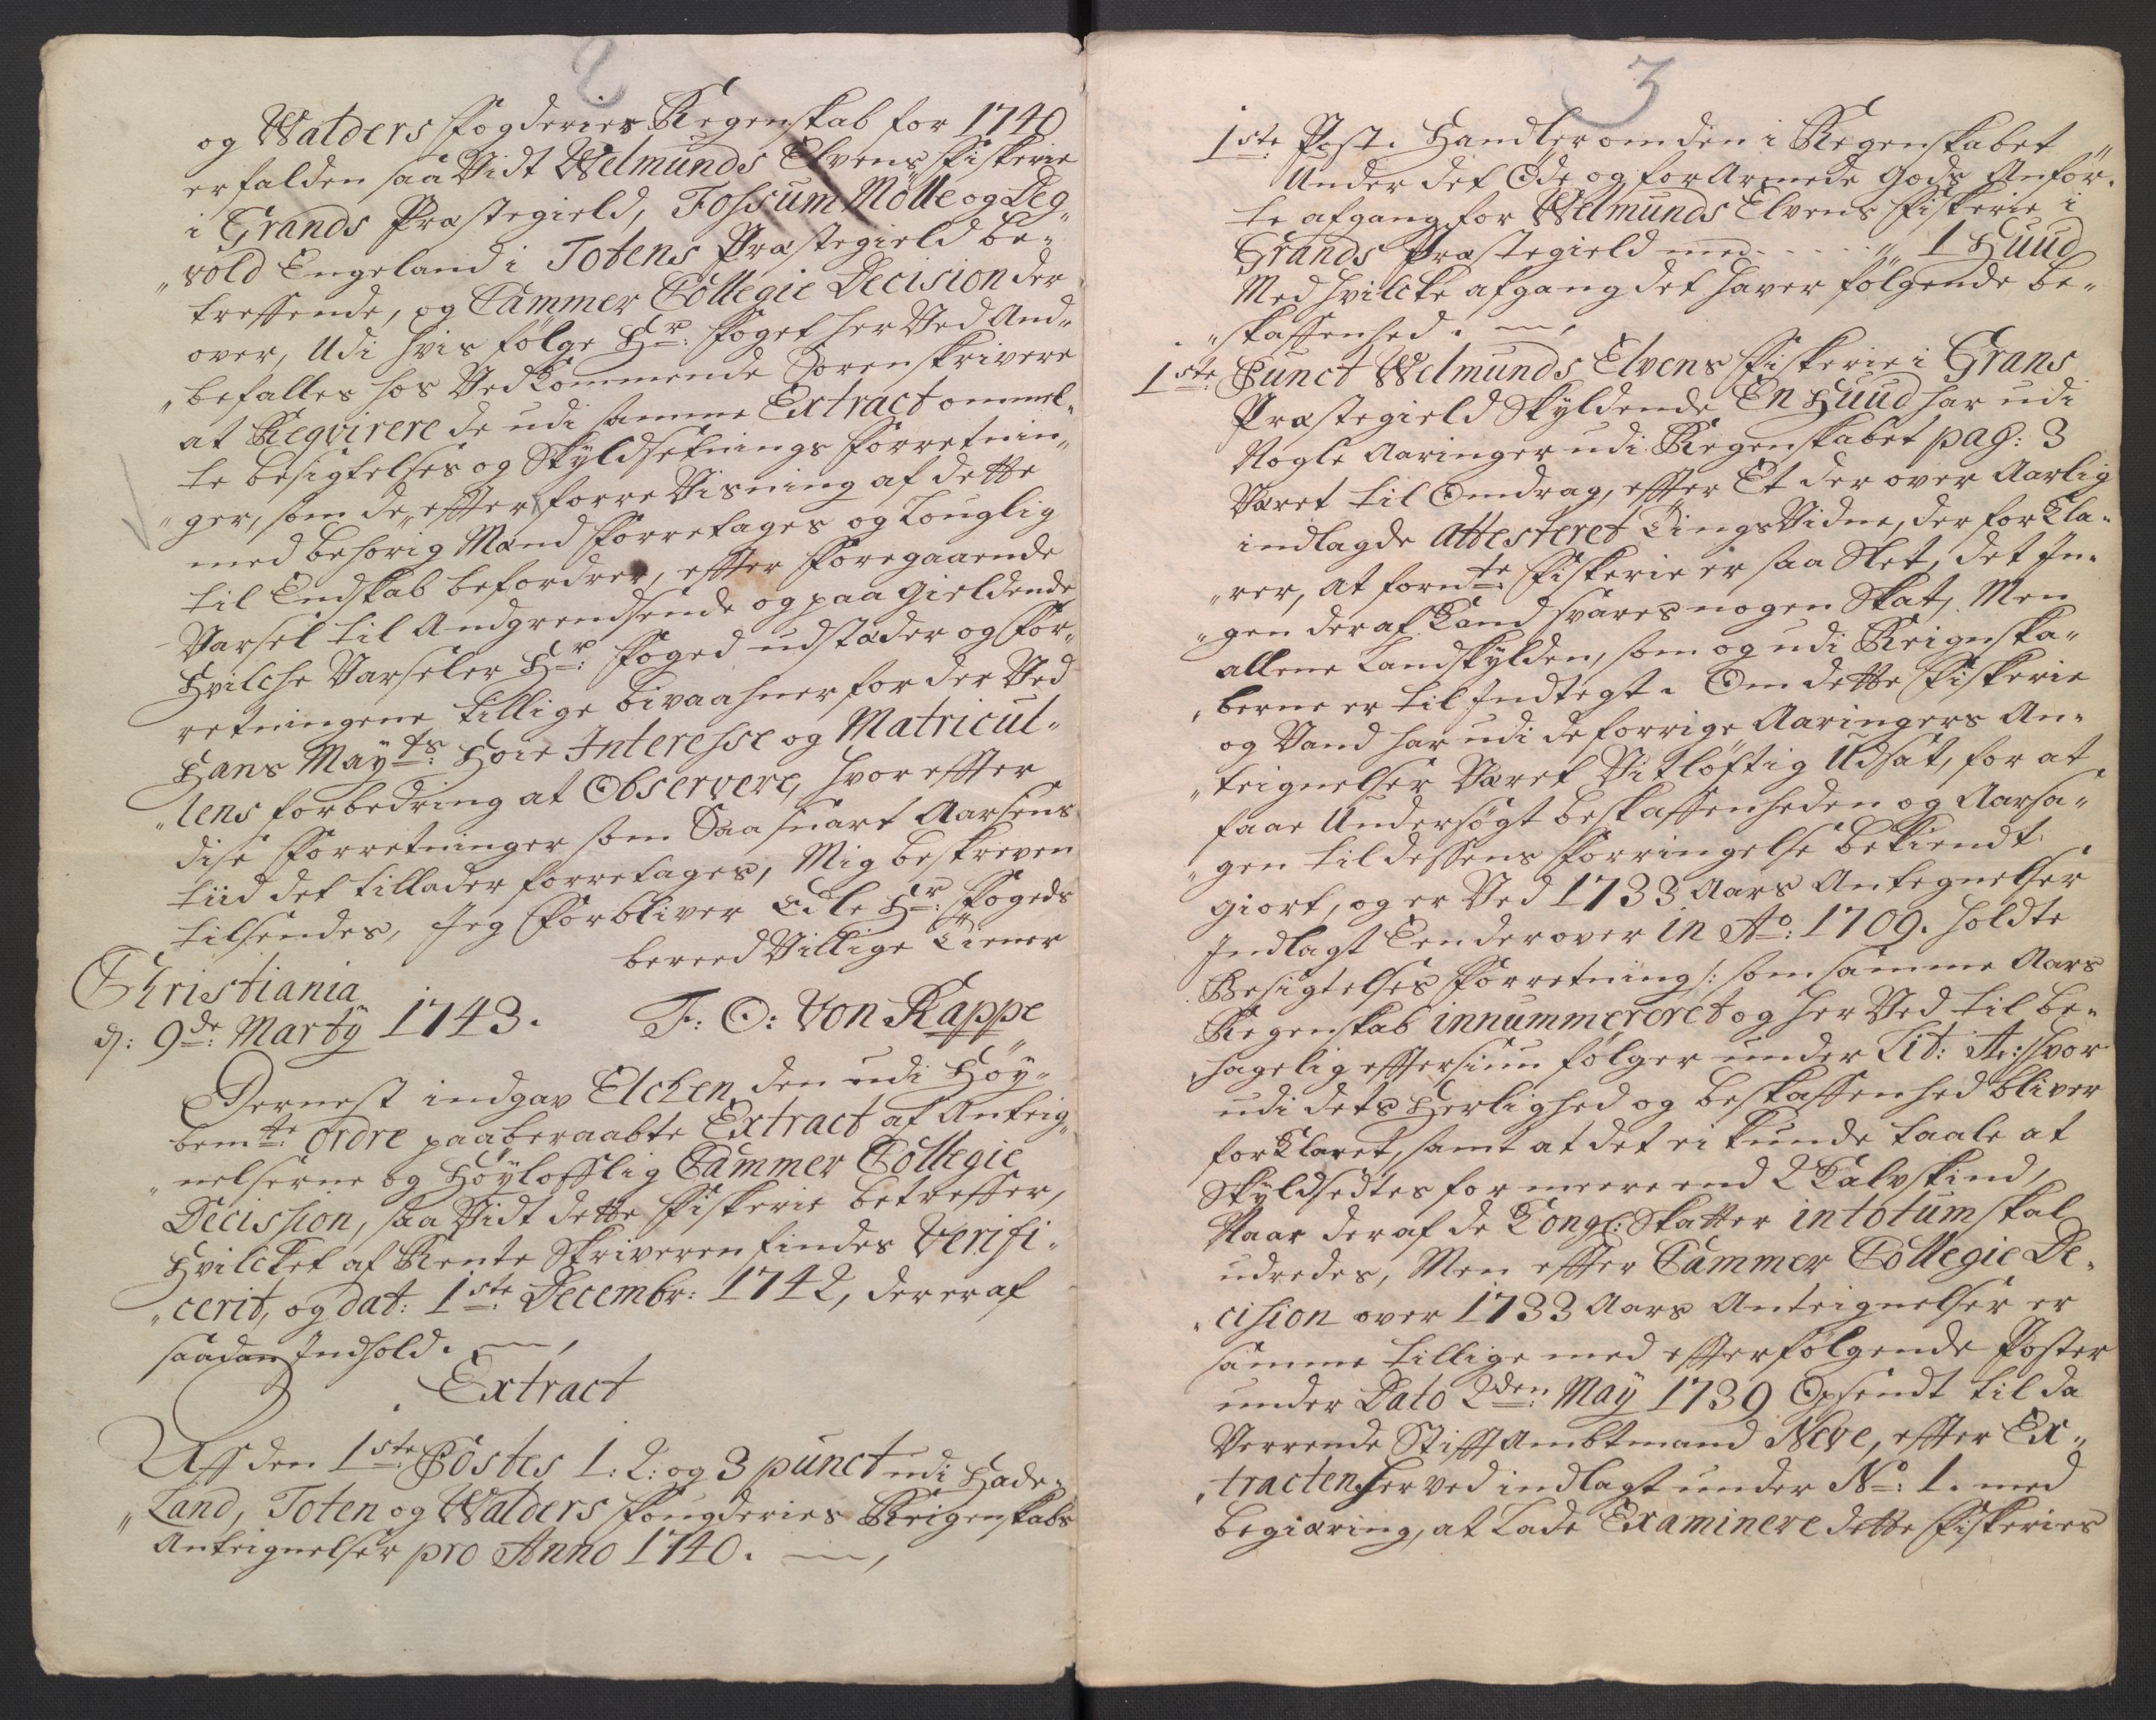 2
og Walders Fogderies Regenskab for 1740
er falden saa Vidt Welmunds Elvens Fiskerie
i Grands Præstegield, Fossum Mølle og Deg„
„vold Engeland i Totens Præstegield be„
treffende, og Cammer Collegie Decision der
over, Udi hvis følge Hr: Foget her Ved And„
„befalles hos Vedkommende Sorenskrivere
at Reqvirere de udi samme Extract ommel„
te besigtelses og Skyldsetnings Forretnin„
„ger, som de, efter forre Visning af dette
med behørig Mænd Forretages og Louglig
til Endskab befordrer, efter Foregaaende
Varsel til Angrendsende og paa gieldende
Hvilche Varseler Hr: Foged udstæder og For„
retningene tillige bivaahner for der Ved
Hans Mayts: Høie Interesse og Matricul„
„lens forbedring at Observere, hvor effter
dise Forretninger som Saa snart Aarsens
tiid det tillader forretages, Mig beskreven
tilsendes, Jeg Forbliver Edle Hr: Fogeds
bereed Villige Tiener
Christiania
d: 9de: Marty 1743. F: O: Von Kappe
Dernest indgav Elchen den udi Høy„
bemte: ordre paaberaabte Extract af Anteig„
„nelserne og Høylofflig Cammer Collegie
Decission, saa Vidt dette Fiskerie betreffer,
Hvilcket af Rente Skriveren findes Verifi„
„cerit, og dat: 1ste: Decembr: 1742, der er af
saadan Indhold.
Extract
Aff den 1ste: Postes 1: 2: og 3 punct udi Hade„
„Land, Toten og Walders Fougderies Reigenskabs
Anteignelser pro Anno 1740.
3
1ste: Post. Handler om den i Regenskabet
Under det Øde og forarmede Gods Anfør„
te afgang for Welmunds Elvens Fiskerie i
Grands Præstegield med - - - - „ 1 Huud
Med hvilcke afgang det haver følgende be„
„skaffenhed.
1ste: Punct Welmunds Elvens Fiskerie i Grans
Præstegield Skyldende En Huud har udi
Nogle Aaringer udi Regenskabet pag: 3
Været til Omdrag, effter Et der over Aarlig
indlagde Attesteret TingsVidne, der forkla„
„rer, At fornte: Fiskerie er saa Slet, det In„
„gen deraf Kand svares nogen Skat, Men
allene Landskylden, som og udi Reignska„
„berne er til Indtegt. Om dette Fiskerie
og Vand har udi de forrige Aaringers An„
„teignelser Været Vitløftig Udsat, for at
faae Undersøgt beskaffenheden og Aarsa„
„gen til dessens Forringelse bekiendt
giort, og er Ved 1733 Aars Antegnelser
Indlagt Een der over in Ao: 1709. holdte
Besigtelses Forretning /: som samme Aars
Regenskab innummereret og her Ved til be„
hagelig efftersiun følger under Lit: A: / hvor
udi dets Herlighed og beskaffenhed bliver
forklaret, samt at det ei kunde taale at
Skyldsedtes for meere end 2 Kalvskind,
Naar der af de Kongl: Skatter in totum skal
udredes, Men effter Cammer Collegie De„
„cision over 1733 Aars Anteignelser er
samme tillige med efterfølgende Poster
under Dato 2den: May 1739 Opsendt til da
Verrende Stifftambtmand Neve, effter Ex„
„tracten her ved indlagt under No: 1. med
begiæring, at Lade Examinere dette Fiskeries